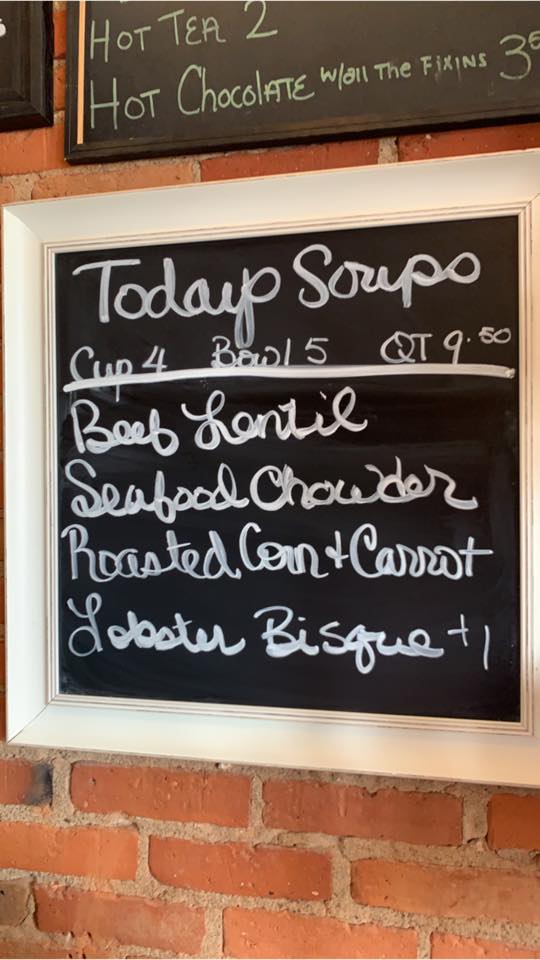 HOT TEA 2
HOT CHOCOLATE w/all The FIXINS 3⁵
Todays Soups
Cup 4 Bowl 5 QT 9.⁵⁰
Beef Lentil
Seafood Chowder
Roasted Corn + Carrot
Lobster Bisque +1